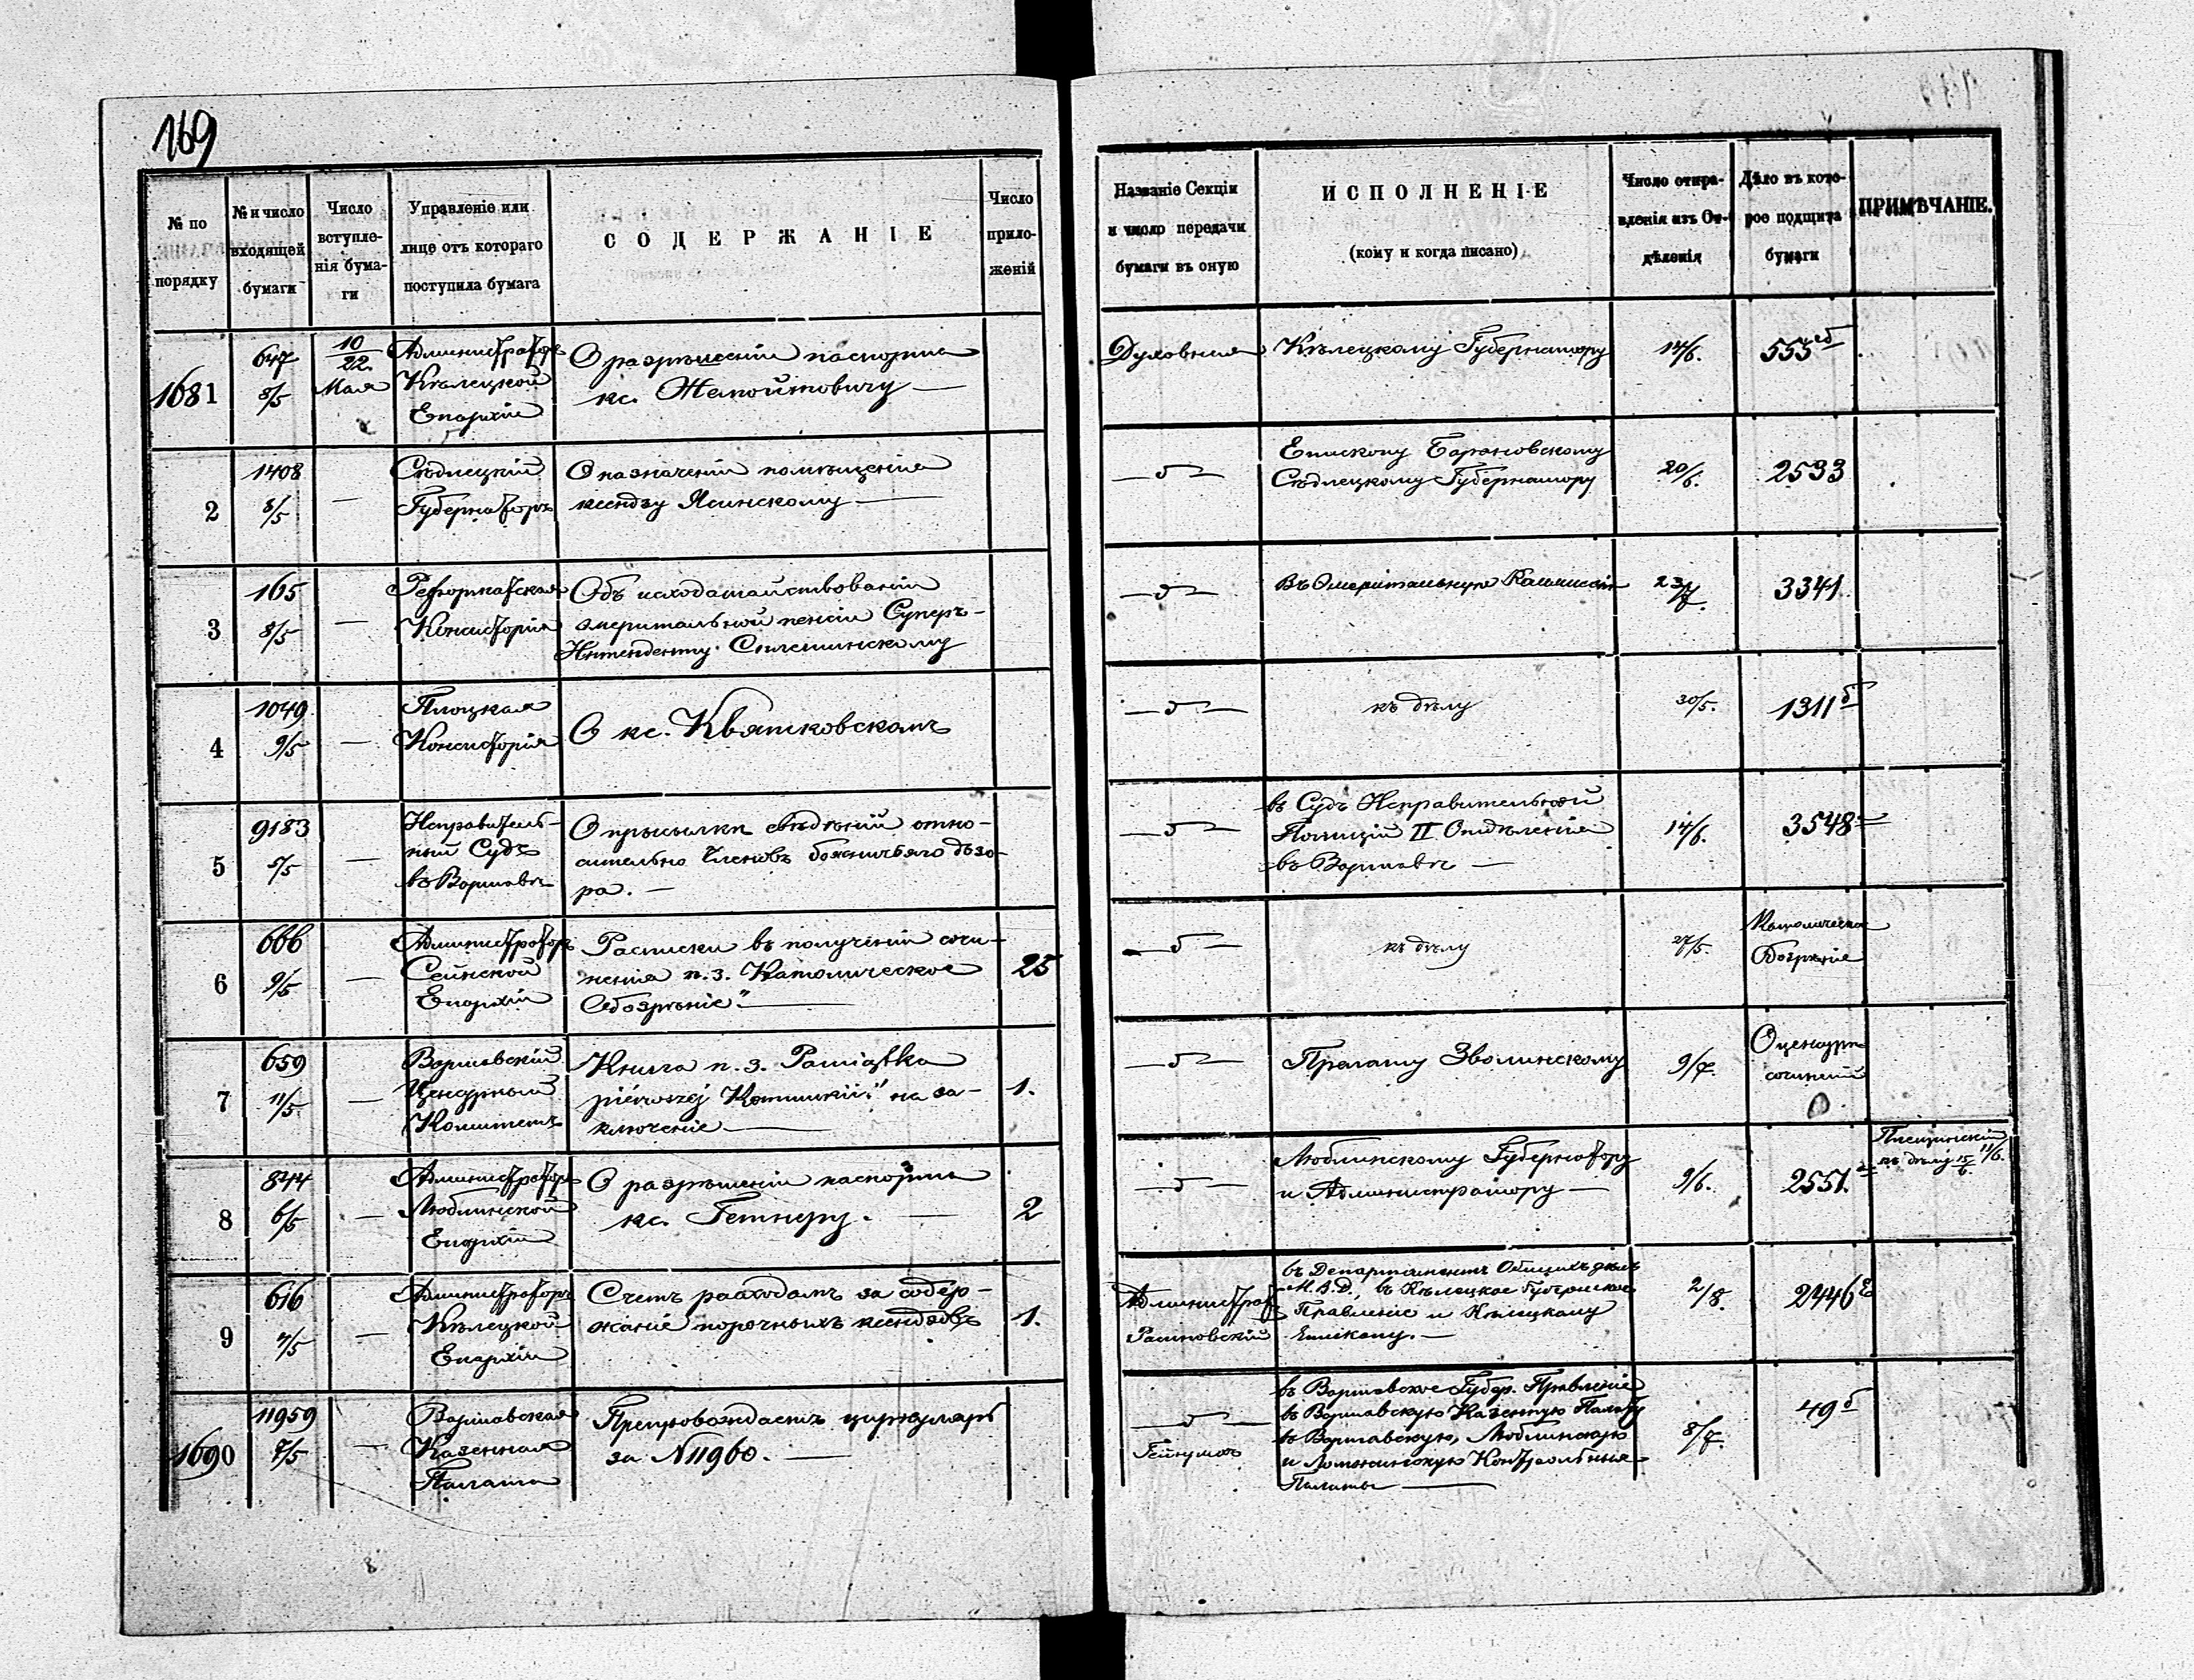 169
№ по порядку
№ и число входящей бумаги
Число вступленія бумаги
Управленіе или лице отъ котораго поступила бумага
СОДЕРЖАНІЕ
Число приложеній
Названіе Секціи и число передачи бумаги въ оную
ИСПОЛНЕНІЕ
(кому и когда писано)
Число отправленія изъ Отдѣленія
Дѣло въ которое подшита бумаги
ПРИМѢЧАНІЕ.
1681
647
8/5
10/22.
Мая
Администраторъ
Кѣлецкой
Епархіи
О разрѣшеніи паспорта
кс. Жемойтовичу —
Духовная
Кѣлецкому Губернатору
14/6.
553 аб
2
1408
8/5
—
Сѣдлецкій
Губернаторъ
О назначеніи помѣщенія
ксендзу Ясинскому —
Епископу Барановскому
Сѣдлецкому Губернатору
20/6.
2533
3
165
8/5
—
Реформатская
Консисторія
Объ исходатайствованіи
эмеритальной пенсіи Суперъ-
Интенденту
Въ Эмеритальную Коммисію
23/7.
3341.
4
1049
9/5
—
Плоцкая
Консисторія
О кс. Квятковскомъ
къ дѣлу
30/5.
1311 б
5
9183
5/5
—
Исправитель-
ный Судъ
въ Варшавѣ
О присылкѣ свѣдѣній отно-
сительно Членовъ божничьяго дозо-
ра. —
въ Судъ Исправительной
Полиціи II Отдѣленія
въ Варшавѣ —
14/6.
3548
6
666
9/5
—
Администраторъ
Сейнской
Епархіи
Расписки въ полученіи сочи-
ненія п.з. Католическое
Обозрѣніе" —
25
къ дѣлу
27/5.
Католическое
Обозрѣніе
7
659
11/5.
—
Варшавскій
Цензурный
Комитетъ
Книга п. з. Pamiątka
piérwszéj Kommunii" на за-
ключеніе —
1.
Прелату Зволинскому
9/7.
О цензурѣ
сочиненій
8
844
6/5
—
Администраторъ
Люблинской
Епархіи
О разрѣшеніи паспорта
кс. Гетнеру. —
2
Люблинскому Губернатору
и Администратору —
9/6.
2551.
къ дѣлу 15/6.
11/6.
9
616
7/5
—
Администраторъ
Кѣлецкой
Епархіи
Счетъ расходамъ за содер-
жаніе порочныхъ ксендзовъ
1.
въ Департаментъ Общихъ дѣлъ
М.В.Д., въ Кѣлецкое Губернское
Правленіе и Кѣлецкому
Епископу. —
2/8.
2446
1690
11959
7/5
—
Варшавская
Казенная
Палата
Препровождаетъ циркуляръ
за N 11960. —
въ Варшавское Губер. Правленіе
въ Варшавскую Казенную Палату
въ Варшавскую, Люблинскую
и Ломжинскую Контрольныя
Палаты —
8/7.
49 б